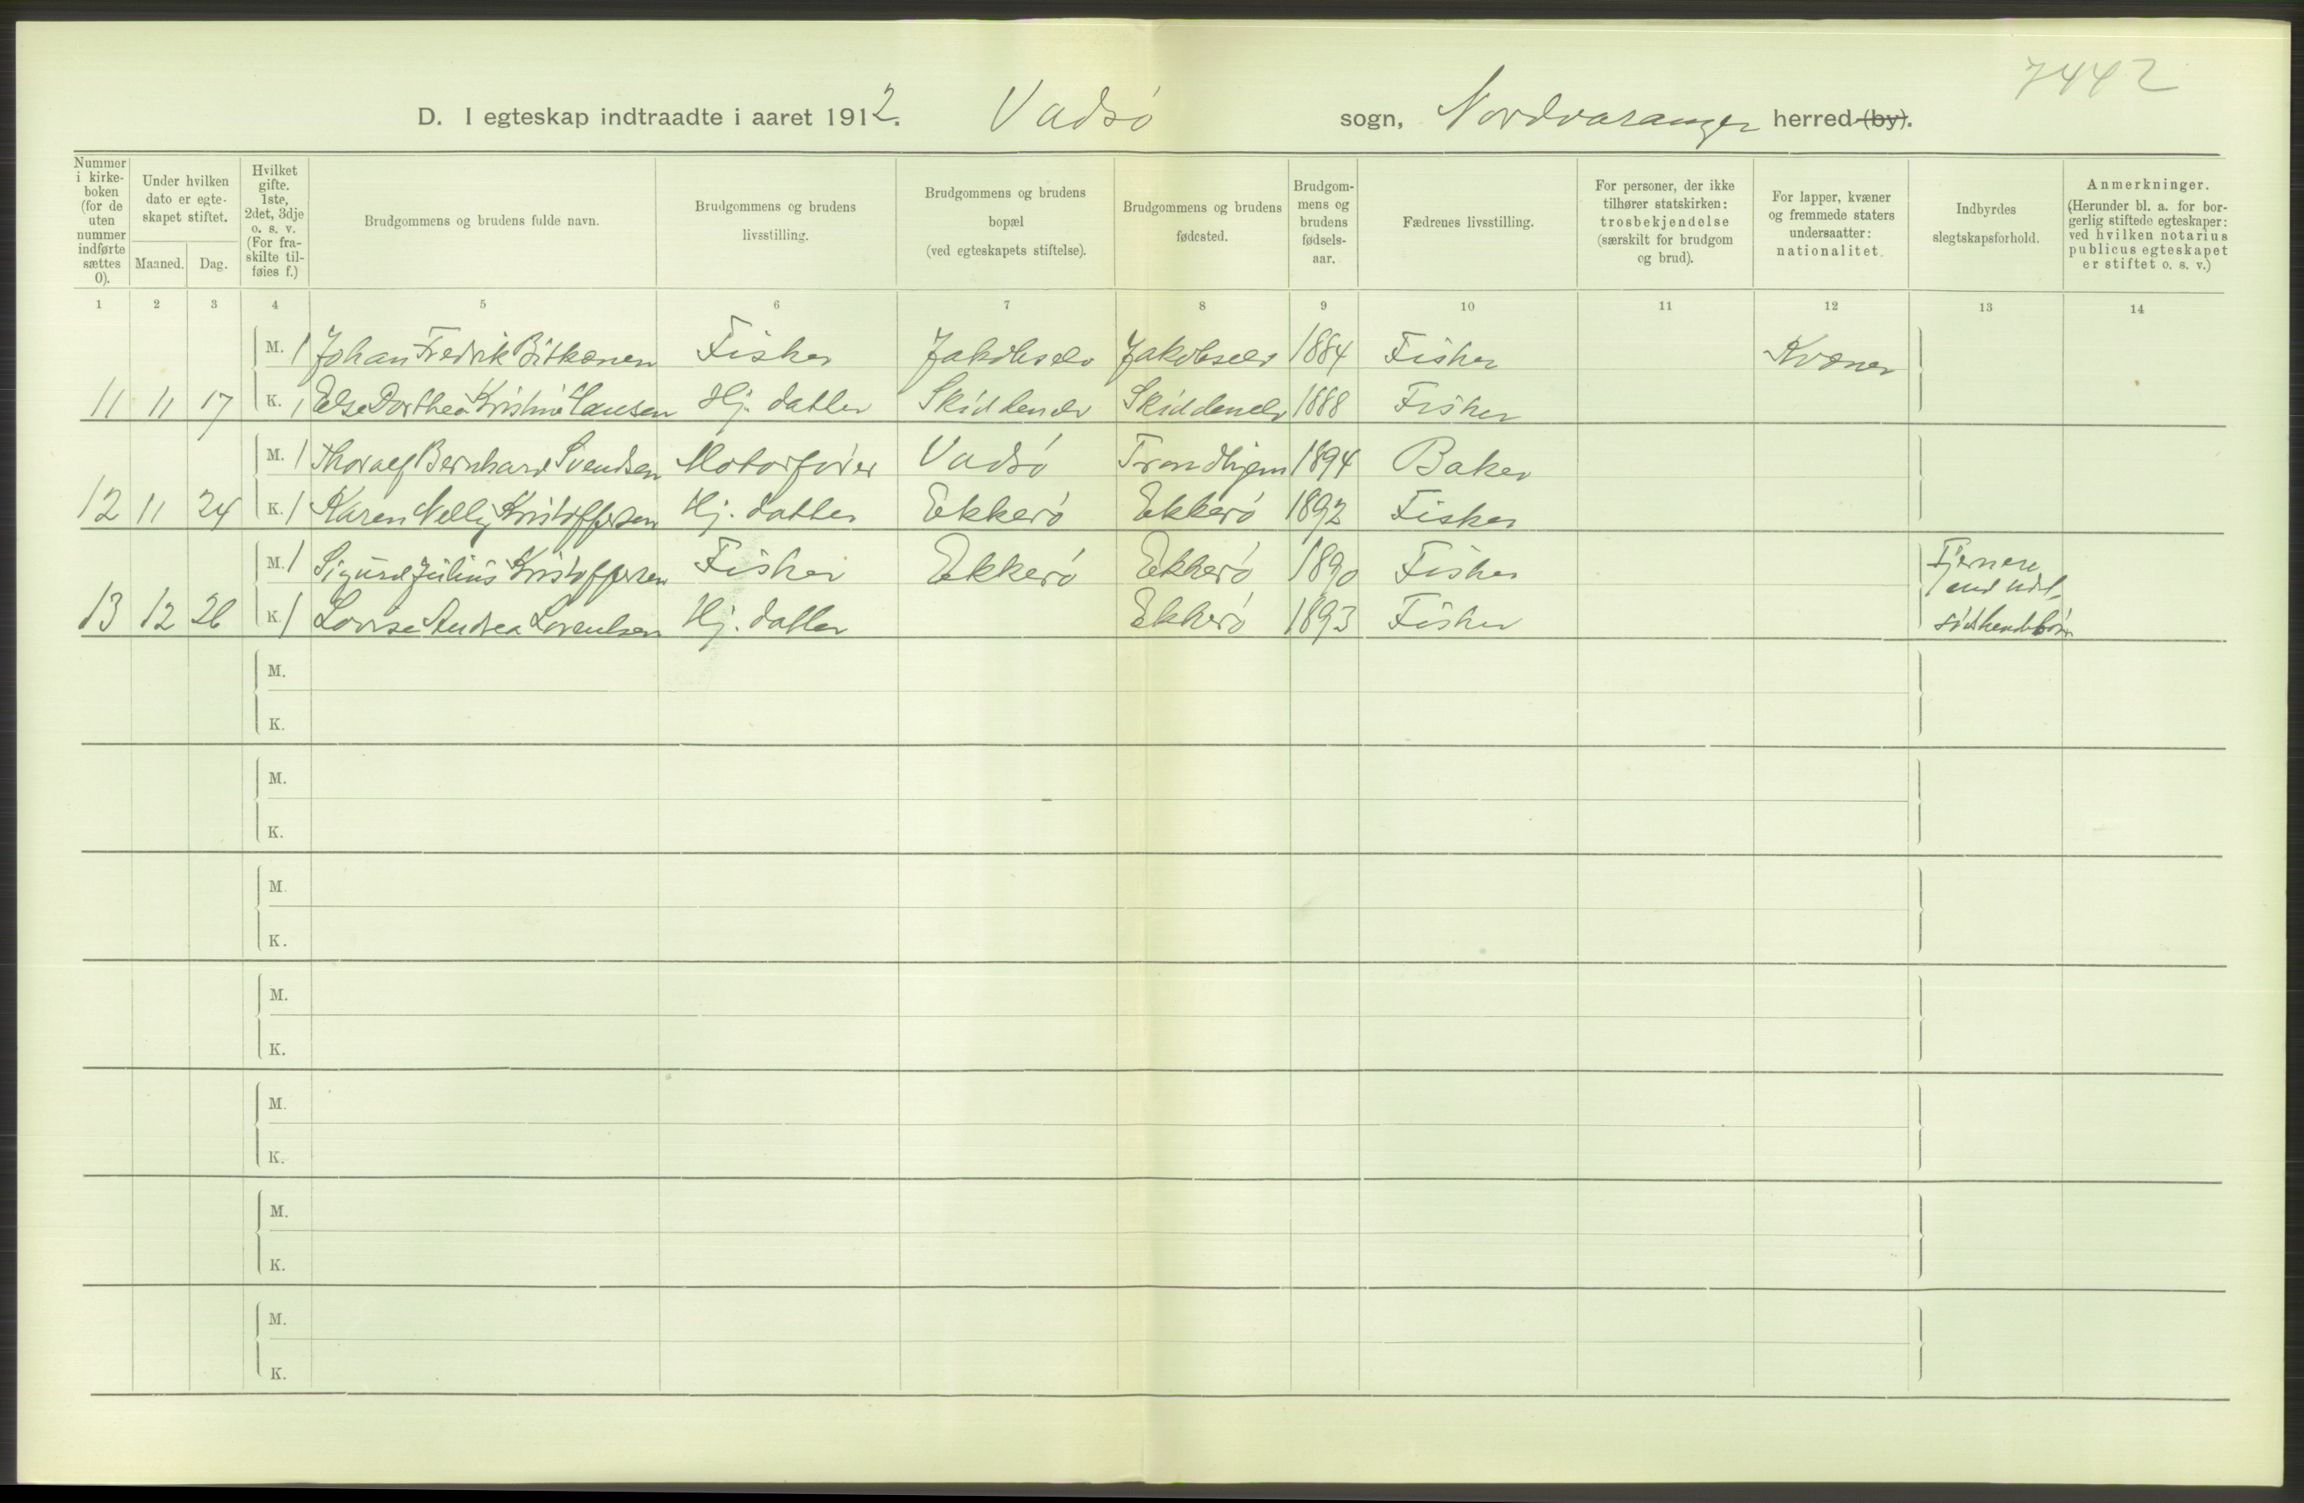 7442
D. I egteskap indtraadte i aaret 1912. Vadsö sogn, Nordvaranger herred (by).
Nummer i kirkeboken (for de uten nummer indførte sættes 0).
Under hvilken dato er egteskapet stiftet.
Maaned. Dag.
Hvilket gifte. 1ste, 2det, 3dje o. s. v. (For fraskilte tilføies f.)
Brudgommens og brudens fulde navn.
Brudgommens og brudens livsstilling.
Brudgommens og brudens bopæl (ved egteskapets stiftelse).
Brudgommens og brudens fødested.
Brudgommens og brudens fødselsaar.
Fædrenes livsstilling.
For personer, der ikke tilhører statskirken: trosbekjendelse (særskilt for brudgom og brud).
For lapper, kvæner og fremmede staters undersaatter: nationalitet.
Indbyrdes slegtskapsforhold.
Anmerkninger. (Herunder bl. a. for borgerlig stiftede egteskaper: ved hvilken notarius publicus egteskapet er stiftet o. s. v.)
1 2 3 4 5 6 7 8 9 10 11 12 13 14
M. 1 Johan Fredrik Fisker Jakobselv Jakobselv 1884 Fisker Kvæner
11 11 17 K. 1 Else Dorthea Kristine Hansen Hj. datter Skiddenelv Skiddenelv 1888 Fisker
M. 1 Thoralf Bernhard Svendsen Motorfører Vadsö Trondhjem 1894 Baker
12 11 24 K. 1 Karen Nelly Kristoffersen Hj. datter Ekkerö Ekkerö 1892 Fisker
M. 1 Sigurd Julius Kristoffersen Fisker Ekkerö Ekkerö 1890 Fisker Fjernere
end
13 12 26 K. 1 Lovise Andrea Lorentsen Hj. datter Ekkerö 1893 Fisker södskendebörn
M.
K.
M.
K.
M.
K.
M.
K.
M.
K.
M.
K.
M.
K.